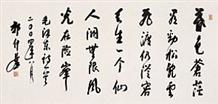 暮色苍茫
看劲松乱云
飞渡仍从容
天生一个仙
人洞无限风
光在险峰
毛泽东诗一首
二〇〇年八月